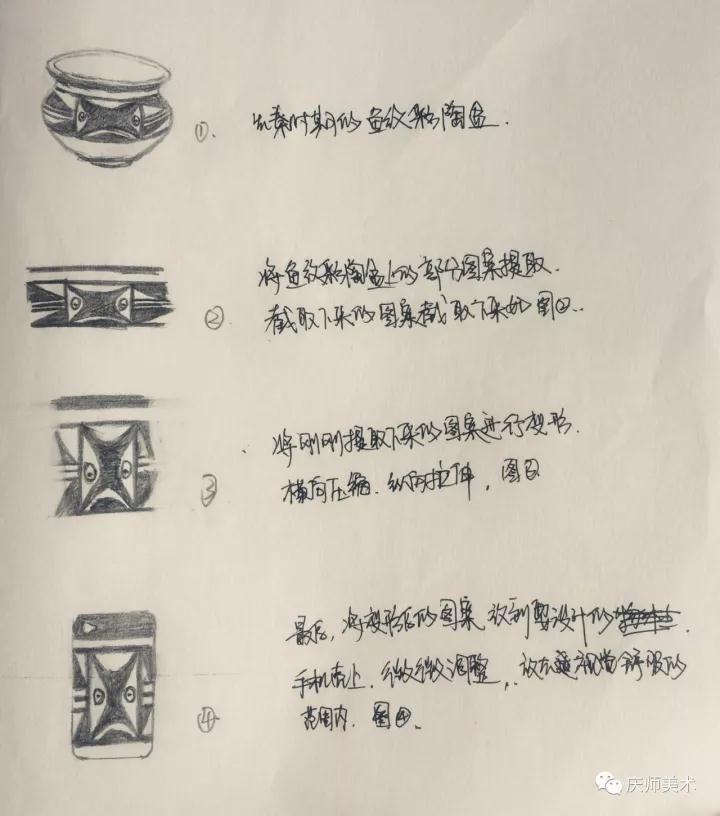 ①. 先秦时期的鱼纹彩陶盆.
将鱼纹彩陶盆上的部分图案提取.
② 截取下来的图案截取下来如图②.
将刚刚提取下来的图案进行变形.
③ 横向压缩.纵向拉伸,图③
最后,将变形后的图案放到要设计的
手机壳上.稍微调整,放在视觉舒服的
④ 范围内. 图④.
庆师美术